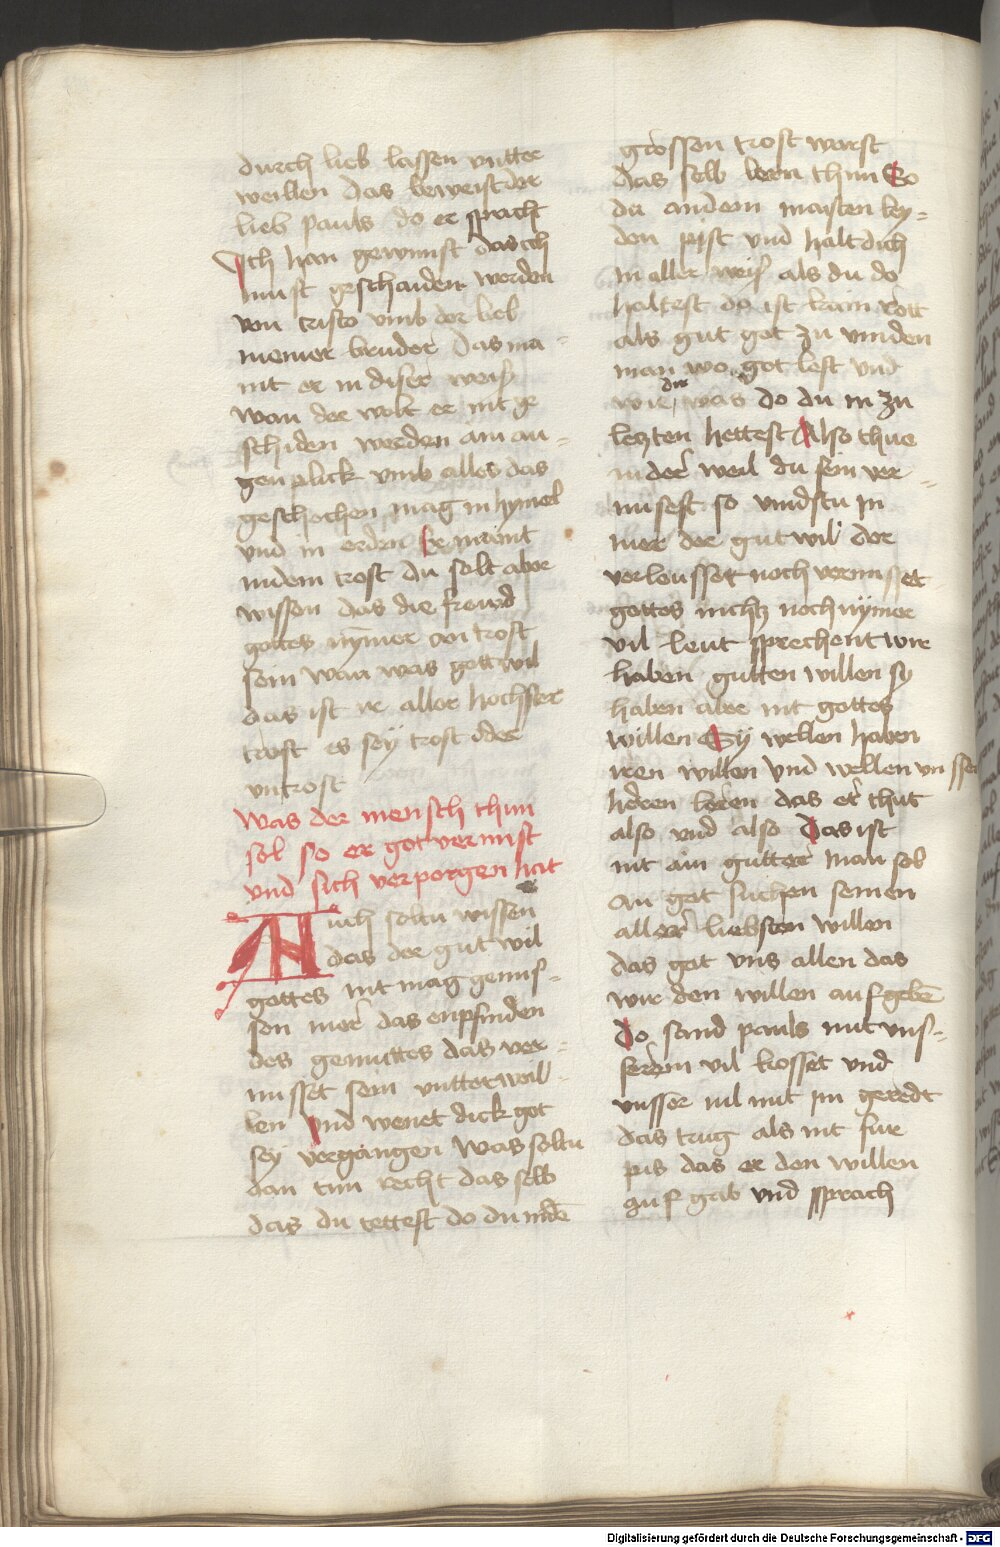 durch lieb lassen vntter
weillen das beweist der
lieb pauls do er sprach
Ich han gewunst das ich
must geschaiden werden
von cristo vmb der lieb
meiner bruder Das ma-
nit er in diser weis
wan der wolt er nit ge
schiden werden am au-
genplick vmb alles das
geschechen mag in hymel
vnd in erden Er maint
nidem trost du solt aber
wissen das die freund
gottes nymer on trost
sein wan was gott wil
das ist ir aller hochster
trost es sey trost oder
vntrost
Was der mensch thun
sol so er got vermist
vnd sich verporgen hat
Auch soltu wissen
das der gut wil
gottes nit mag gemis-
sen mer das enpfinden
des gemuttes das ver-
misset sein vntterweil
len Vnd wenet dick got
sey vergangen Was soltu
dan tun recht das selb
das du tettest do du inde
grossen trost warst
das selb leren thun So
du andem maisten ley-
den pist vnd halt dich
in aller weis als du do
haltest do ist kain rott
als gut got zu vinden
man wo got lest vnd
wie dir was do du in zu
letzten hettest Also thue
in der weil du sein ver-
misest so vindstu in
mer der gut wil der
verleusset noch vermisset
gottes nichtz noch nymer
vil leut sprechent wir
haben gutten willen sy
haben aber nit gottes
willen Sy wellen haben
iren willen vnd wellen vnsser
heren leren das er thut
also vnd also Das ist
nit ain gutter man sol
an got suchen seinen
aller liebsten willen
das got vns allen das
wir den willen auf geben
Do sand pauls mit vns-
serem vil kosset vnd
vnsser vil mit im geredt
das trug als nit fur
pis das er den willen
auf gab vnd sprach
Digitalisierung gefördert durch die Deutsche Forschungsgemeinschaft - DFG